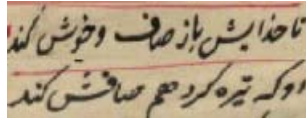 تا خدایش باز صاف و خوش کند
او که تیره کرد هم صافش کند